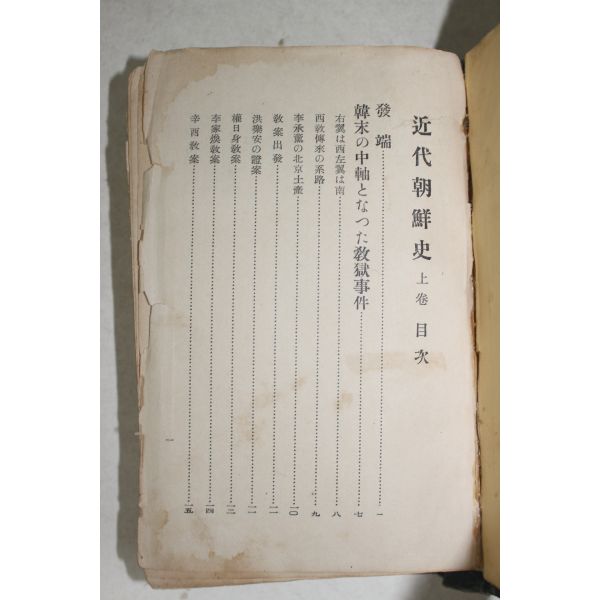 近代朝鮮史 上卷 目次
發端……一
韓末の中軸となつた敎獄事件……七
右翼は西左翼は南……八
西敎傳來の系路……九
李承薰の北京土產……一〇
敎案出發……一一
洪樂安の證案……一一
權日身敎案……一三
李家煥敎案……一四
辛酉敎案……一五
一